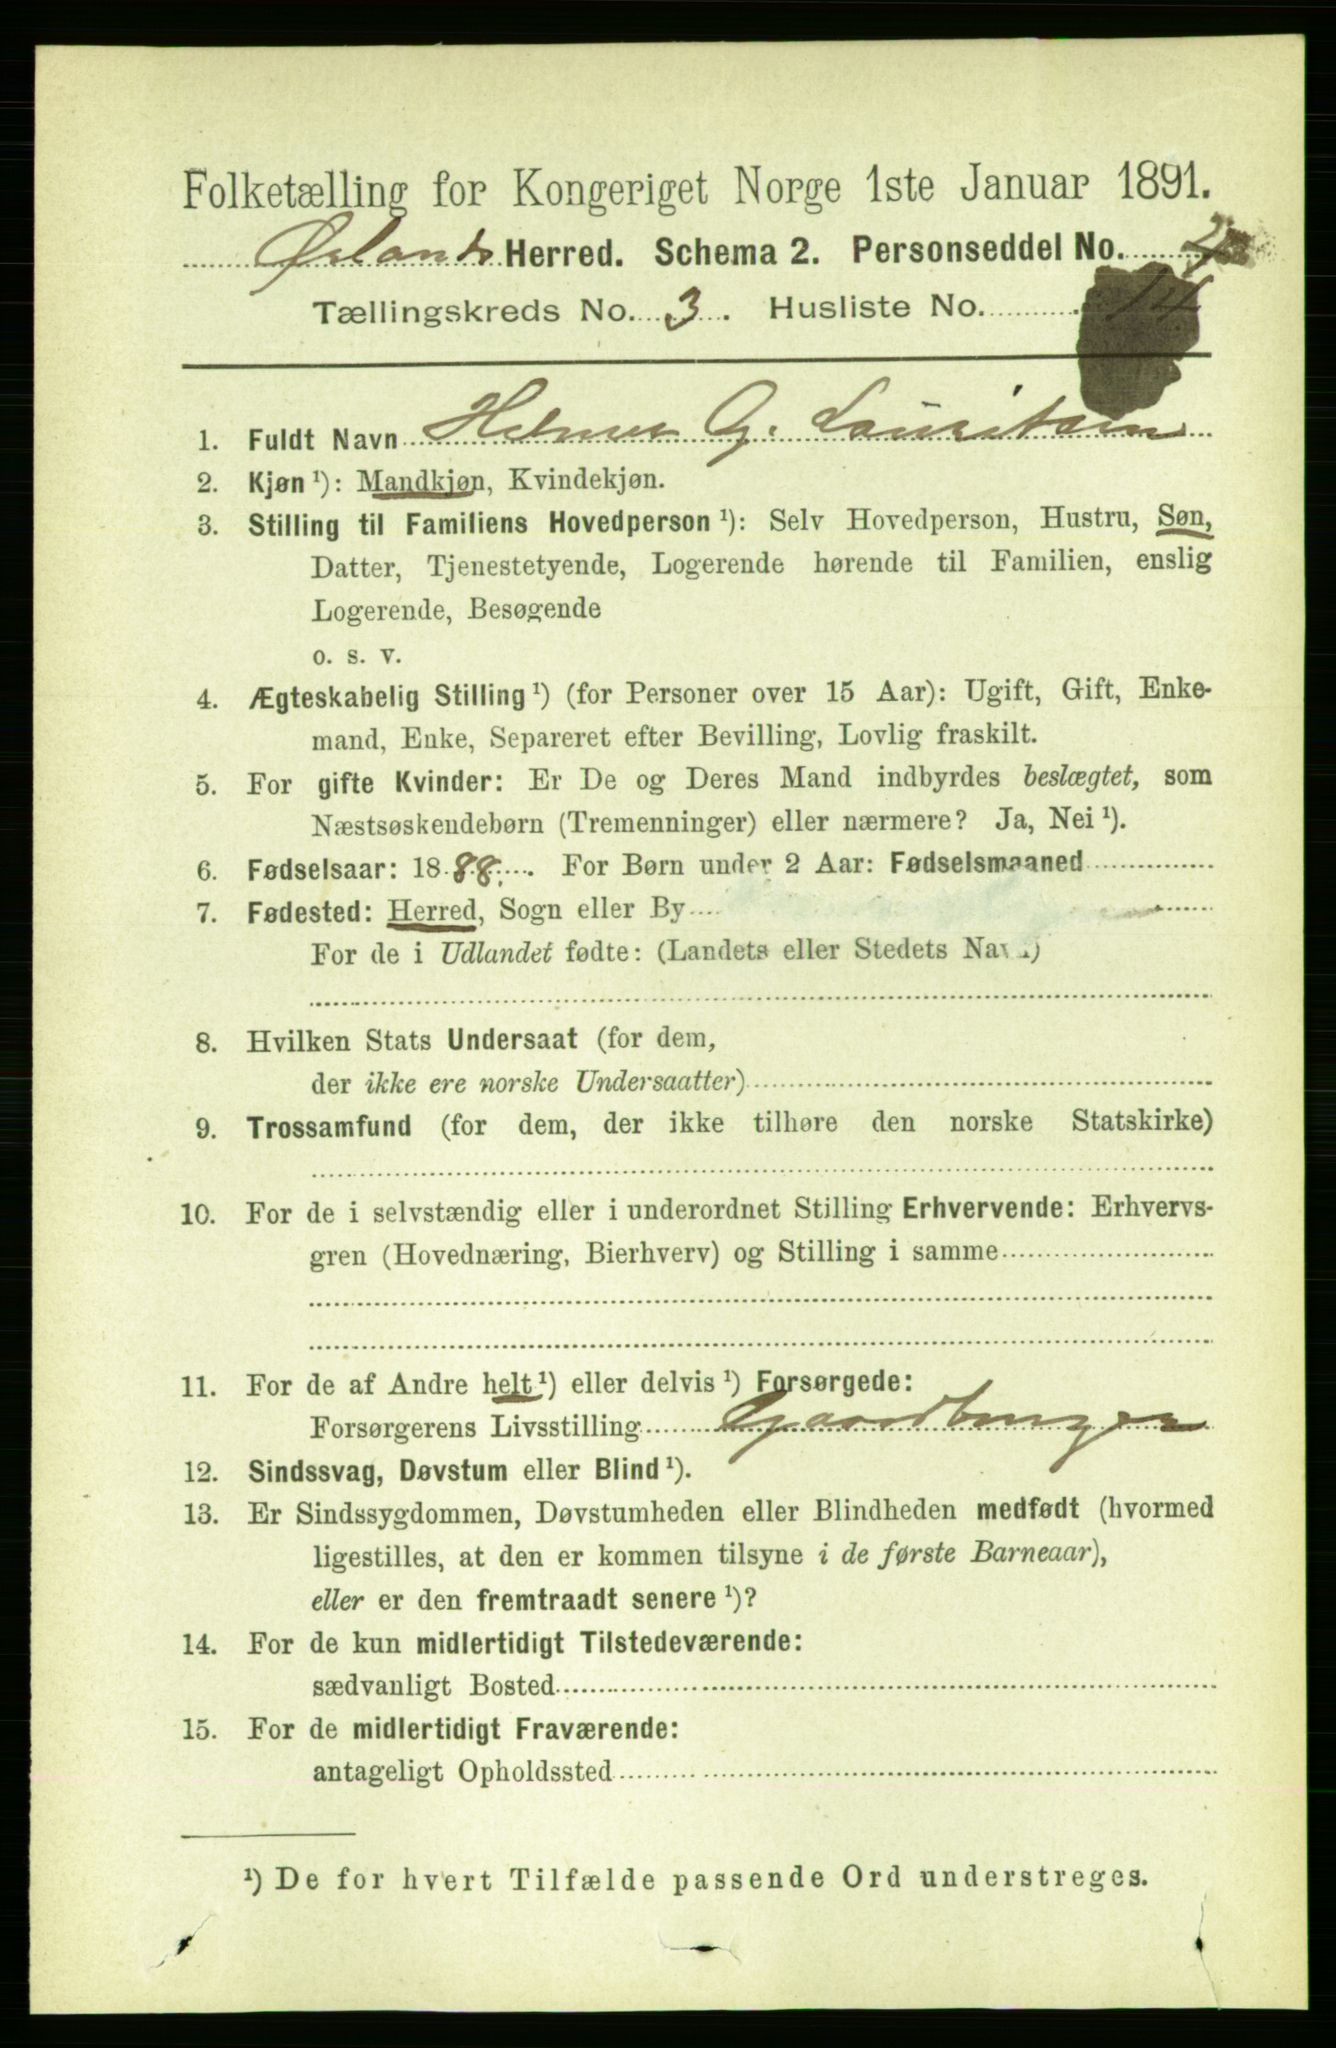 Folketælling for Kongeriget Norge 1ste Januar 1891.
Ørlands Herred. Schema 2. Personseddel No. 4
Tællingskreds No. 3. Husliste No. 14
1. Fuldt Navn Helmer G. Lauritsen
2. Kjøn ¹): Mandkjøn, Kvindekjøn.
3. Stilling til Familiens Hovedperson ¹): Selv Hovedperson, Hustru, Søn,
Datter, Tjenestetyende, Logerende hørende til Familien, enslig
Logerende, Besøgende
o. s. v.
4. Ægteskabelig Stilling ¹) (for Personer over 15 Aar): Ugift, Gift, Enke-
mand, Enke, Separeret efter Bevilling, Lovlig fraskilt.
5. For gifte Kvinder: Er De og Deres Mand indbyrdes beslægtet, som
Næstsøskendebørn (Tremenninger) eller nærmere? Ja, Nei ¹).
6. Fødselsaar: 1888. For Børn under 2 Aar: Fødselsmaaned
7. Fødested: Herred, Sogn eller By
For de i Udlandet fødte: (Landets eller Stedets Navn)
8. Hvilken Stats Undersaat (for dem,
der ikke ere norske Undersaatter)
9. Trossamfund (for dem, der ikke tilhøre den norske Statskirke)
10. For de i selvstændig eller i underordnet Stilling Erhvervende: Erhvervs-
gren (Hovednæring, Bierhverv) og Stilling i samme
11. For de af Andre helt ¹) eller delvis ¹) Forsørgede:
Forsørgerens Livsstilling Gaardbruger
12. Sindssvag, Døvstum eller Blind ¹).
13. Er Sindssygdommen, Døvstumheden eller Blindheden medfødt (hvormed
ligestilles, at den er kommen tilsyne i de første Barneaar),
eller er den fremtraadt senere ¹)?
14. For de kun midlertidigt Tilstedeværende:
sædvanligt Bosted
15. For de midlertidigt Fraværende:
antageligt Opholdssted
¹) De for hvert Tilfælde passende Ord understreges.